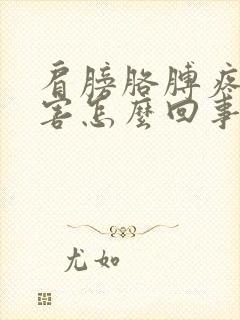 肩膀胳膊疼
害怎麼回事
尤如